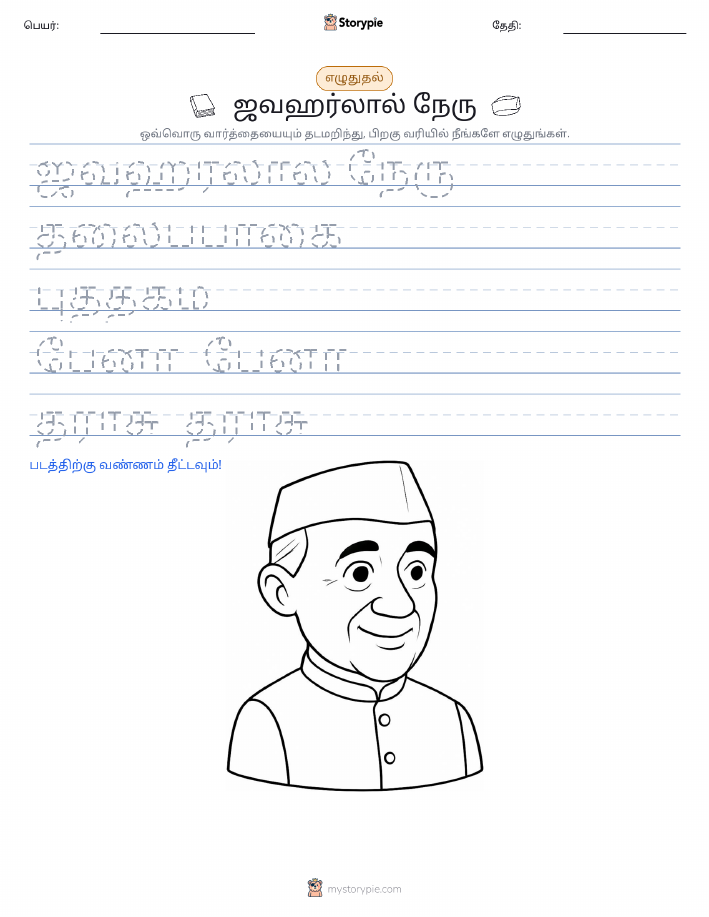 பெயர்:
Storypie
தேதி:
எழுதுதல்
ஜவஹர்லால் நேரு
ஒவ்வொரு வார்த்தையையும் தடமறிந்து, பிறகு வரியில் நீங்களே எழுதுங்கள்.
ஜவஹரலால நேரு
தலைபபாகை
புததகம
பேனா பேனா
தராசு தராசு
படத்திற்கு வண்ணம் தீட்டவும்!
mystorypie.com